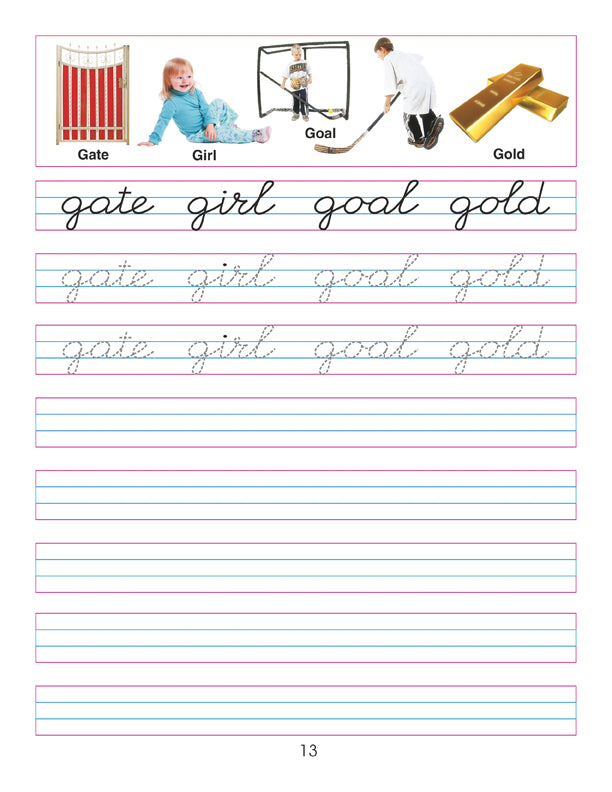 Gate Girl Goal Gold
gate girl goal gold
gate girl goal gold
gate girl goal gold
13